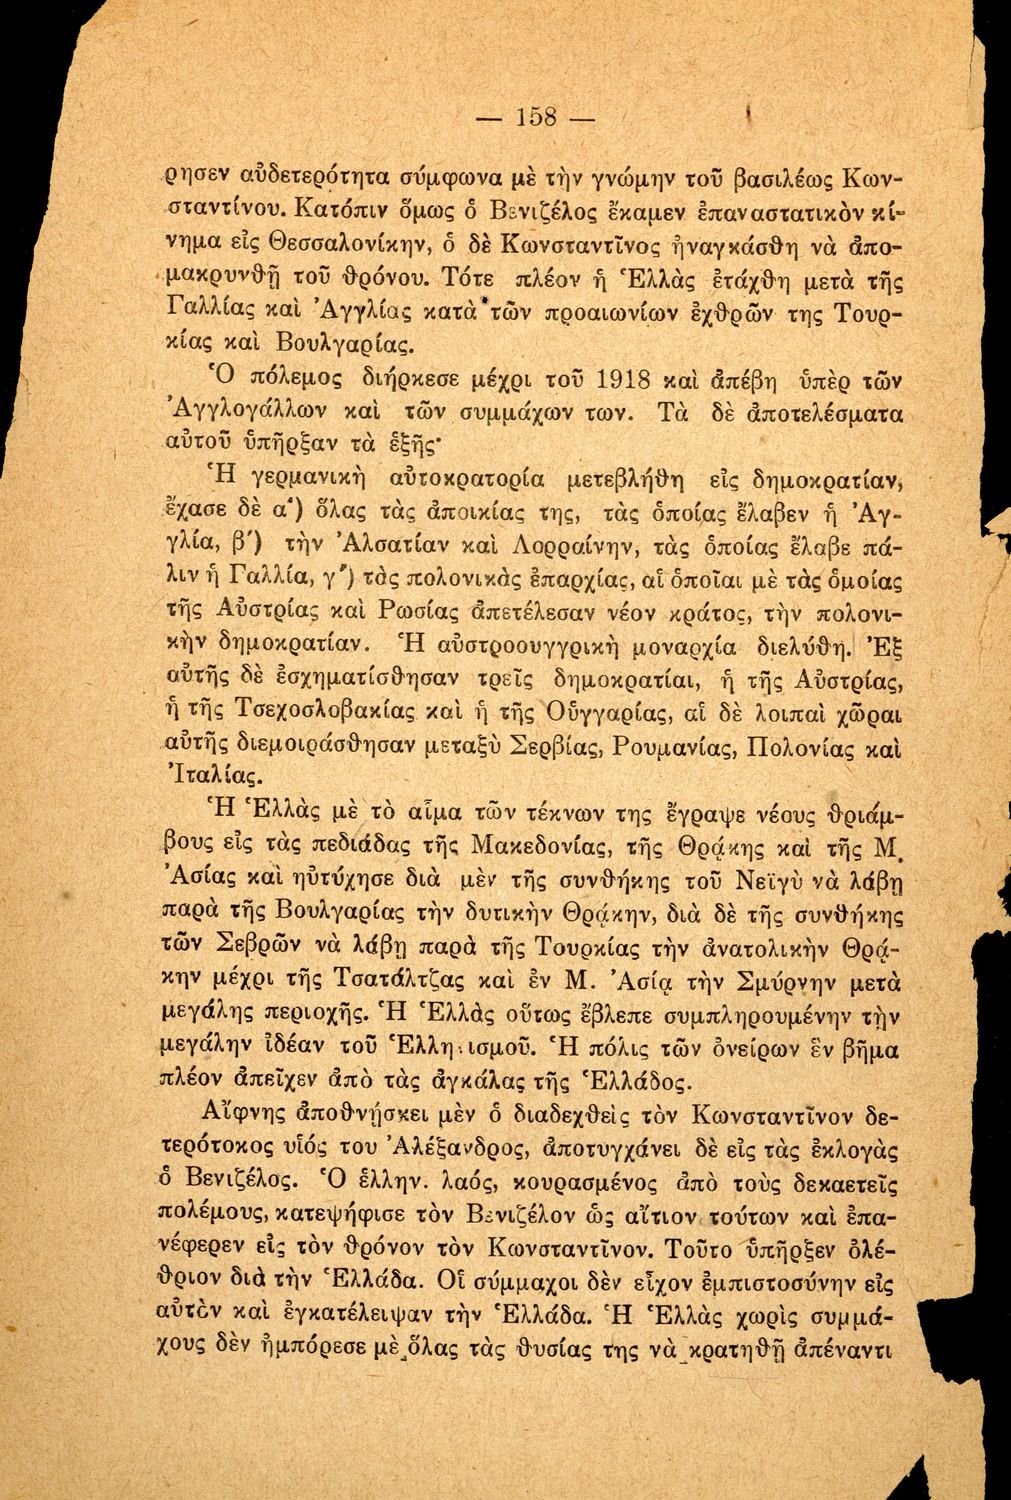 — 158 —
ρησεν αὐδετερότητα σύμφωνα μὲ τὴν γνώμην τοῦ βασιλέως Κων-
σταντίνου. Κατόπιν ὅμως ὁ Βενιζέλος ἔκαμεν ἐπαναστατικὸν κί-
νημα εἰς Θεσσαλονίκην, ὁ δὲ Κωνσταντῖνος ἠναγκάσθη νὰ ἀπο-
μακρυνθῇ τοῦ θρόνου. Τότε πλέον ἡ Ἑλλὰς ἐτάχθη μετὰ τῆς
Γαλλίας καὶ Ἀγγλίας κατὰ τῶν προαιωνίων ἐχθρῶν της Τουρ-
κίας καὶ Βουλγαρίας.
Ὁ πόλεμος διήρκεσε μέχρι τοῦ 1918 καὶ ἀπέβη ὑπὲρ τῶν
Ἀγγλογάλλων καὶ τῶν συμμάχων των. Τὰ δὲ ἀποτελέσματα
αὐτοῦ ὑπῆρξαν τὰ ἑξῆς·
Ἡ γερμανικὴ αὐτοκρατορία μετεβλήθη εἰς δημοκρατίαν,
ἔχασε δὲ α΄) ὅλας τὰς ἀποικίας της, τὰς ὁποίας ἔλαβεν ἡ Ἀγ-
γλία, β΄) τὴν Ἀλσατίαν καὶ Λορραίνην, τὰς ὁποίας ἔλαβε πά-
λιν ἡ Γαλλία, γ΄) τὰς πολονικὰς ἐπαρχίας, αἱ ὁποῖαι μὲ τὰς ὁμοίας
τῆς Αὐστρίας καὶ Ρωσίας ἀπετέλεσαν νέον κράτος, τὴν πολονι-
κὴν δημοκρατίαν. Ἡ αὐστροουγγρικὴ μοναρχία διελύθη. Ἐξ
αὐτῆς δὲ ἐσχηματίσθησαν τρεῖς δημοκρατίαι, ἡ τῆς Αὐστρίας,
ἡ τῆς Τσεχοσλοβακίας καὶ ἡ τῆς Οὑγγαρίας, αἱ δὲ λοιπαὶ χῶραι
αὐτῆς διεμοιράσθησαν μεταξὺ Σερβίας, Ρουμανίας, Πολονίας καὶ
Ἰταλίας.
Ἡ Ἑλλὰς μὲ τὸ αἷμα τῶν τέκνων της ἔγραψε νέους θριάμ-
βους εἰς τὰς πεδιάδας τῆς Μακεδονίας, τῆς Θρᾴκης καὶ τῆς Μ.
Ἀσίας καὶ ηὐτύχησε διὰ μὲν τῆς συνθήκης τοῦ Νεϊγὺ νὰ λάβῃ
παρὰ τῆς Βουλγαρίας τὴν δυτικὴν Θρᾴκην, διὰ δὲ τῆς συνθήκης
τῶν Σεβρῶν νὰ λάβῃ παρὰ τῆς Τουρκίας τὴν ἀνατολικὴν Θρᾴ-
κην μέχρι τῆς Τσατάλτζας καὶ ἐν Μ. Ἀσίᾳ τὴν Σμύρνην μετὰ
μεγάλης περιοχῆς. Ἡ Ἑλλὰς οὕτως ἔβλεπε συμπληρουμένην τὴν
μεγάλην ἰδέαν τοῦ Ἑλληνισμοῦ. Ἡ πόλις τῶν ὀνείρων ἓν βῆμα
πλέον ἀπεῖχεν ἀπὸ τὰς ἀγκάλας τῆς Ἑλλάδος.
Αἴφνης ἀποθνῄσκει μὲν ὁ διαδεχθεὶς τὸν Κωνσταντῖνον δε-
τερότοκος υἱός του Ἀλέξανδρος, ἀποτυγχάνει δὲ εἰς τὰς ἐκλογὰς
ὁ Βενιζέλος. Ὁ ἑλλην. λαός, κουρασμένος ἀπὸ τοὺς δεκαετεῖς
πολέμους, κατεψήφισε τὸν Βενιζέλον ὡς αἴτιον τούτων καὶ ἐπα-
νέφερεν εἰς τὸν θρόνον τὸν Κωνσταντῖνον. Τοῦτο ὑπῆρξεν ὀλέ-
θριον διὰ τὴν Ἑλλάδα. Οἱ σύμμαχοι δὲν εἶχον ἐμπιστοσύνην εἰς
αὐτὸν καὶ ἐγκατέλειψαν τὴν Ἑλλάδα. Ἡ Ἑλλὰς χωρὶς συμμά-
χους δὲν ἠμπόρεσε μὲ ὅλας τὰς θυσίας της νὰ κρατηθῇ ἀπέναντι